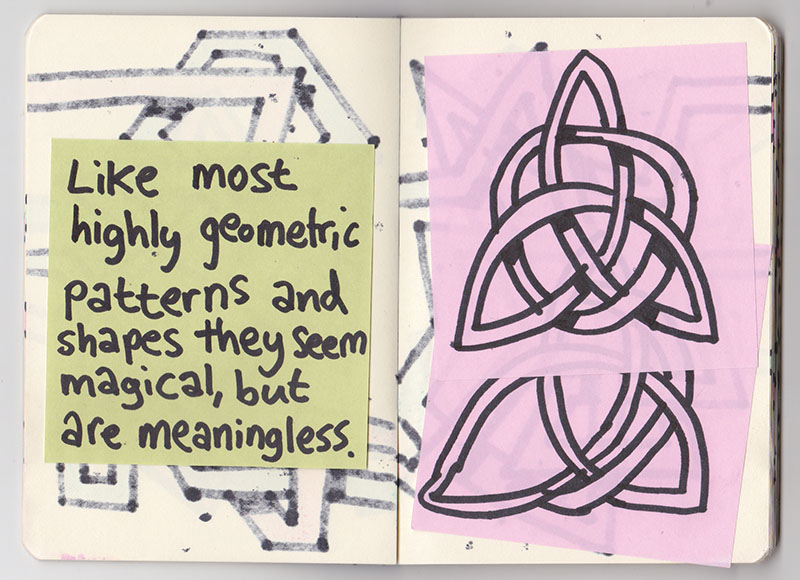 Like most
highly geometric
patterns and
shapes they seem
magical, but
are meaningless.